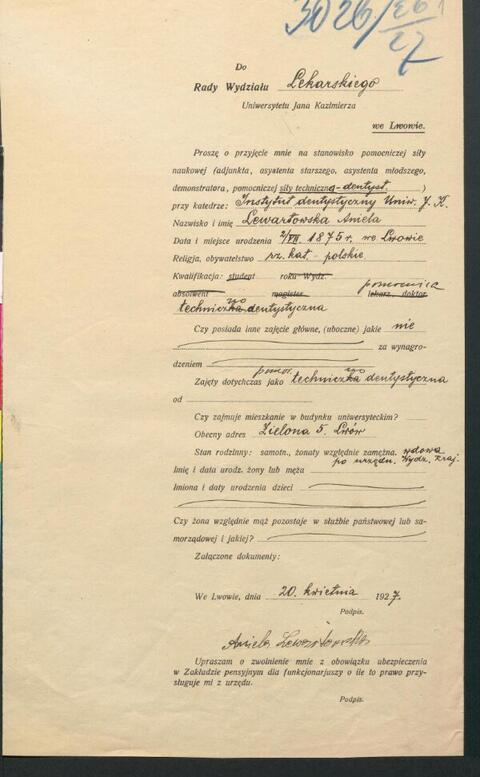 3026/26/27
Do
Rady Wydziału Lekarskiego
Uniwersytetu Jana Kazimierza
we Lwowie.
Proszę o przyjęcie mnie na stanowisko pomocniczej siły
naukowej (adjunkta, asystenta starszego, asystenta młodszego,
demonstratora, pomocniczej siły techniczną-dentyst. )
przy katedrze: Instytut dentystyczny Uniw. J. K.
Nazwisko i imię Lewartowska Aniela
Data i miejsce urodzenia 2/VII. 1875 r. we Lwowie
Religja, obywatelstwo rz. kat. - polskie.
Kwalifikacja: student roku Wydz. pomocnica
absolwent magister lekarz doktor
techniczno dentystyczna
Czy posiada inne zajęcie główne, (uboczne) jakie nie
za wynagro-
dzeniem
Zajęty dotychczas jako pomoc. techniczno dentystyczna
od
Czy zajmuje mieszkanie w budynku uniwersyteckim?
Obecny adres Zielona 5. Lwów
Stan rodzinny: samotn., żonaty względnie zamężna. wdowa
po urzędn. Wydz. Kraj.
Imię i data urodz. żony lub męża
Imiona i daty urodzenia dzieci
Czy żona względnie mąż pozostaje w służbie państwowej lub sa-
morządowej i jakiej?
Załączone dokumenty:
We Lwowie, dnia 20. kwietnia 1927.
Podpis.
Aniela Lewartowska
Upraszam o zwolnienie mnie z obowiązku ubezpieczenia
w Zakładzie pensyjnym dla funkcjonarjuszy o ile to prawo przy-
sługuje mi z urzędu.
Podpis.